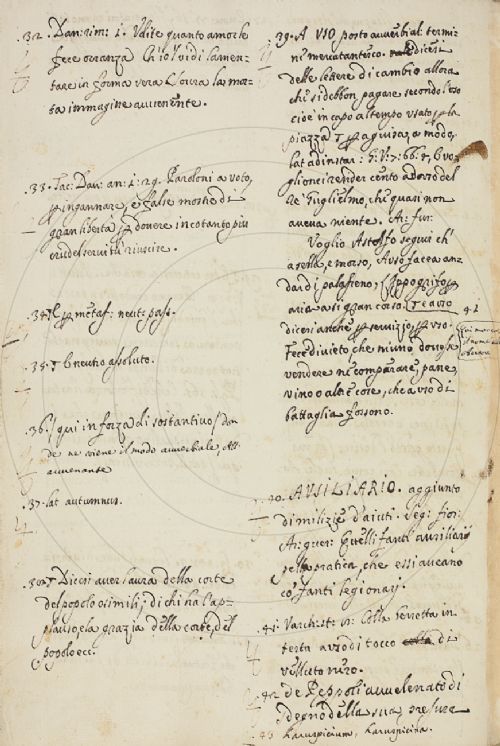 .32. Dan: rim: 1. Udite quanto amor le
fece orranza Ch'io 'l vidi lamen-
tare in forma vera Sovra la mor-
ta immagine avvenente.
.33. Tac: Dav: an: 1: 29. Paroloni a voto,
p ingannare, e false mostre di
gran libertà p dovere in cotanto più
crudel servitù riuscire.
.34. E p metaf: neut: pass.
.35. neutro assoluto.
.36. qui in forza di sostantivo, don
de ne viene il modo avverbiale, All'
avvenante
.37. lat autumnus.
Dicesi aver l'aura della corte
del popolo o simili, di chi ha l'ap-
plauso, e la grazia della corte, del
popolo ec:
.39. A USO posto avverbial: termi-
ne mercantesco. dicesi
delle lettere di cambio allora
che si debbon pagare secondo l'uso
cioè in capo al tempo usato p la
piazza p a guisa, a modo,
lat ad instar: G: V: 7: 66: 7. E vo-
glionci render cento a dosso del
Re Guglielmo, che quasi non
aveva niente. Ar: fur:
Voglio Astolfo seguir ch'
a sella, e morso, A uso facea an-
dar di palafreno, L'Ippogrifo p
aria a sì gran corso.
dicesi anche p servizio, p uso.
Fece divieto che niuno dovesse
vendere né comparare, pane,
vino o altre cose, che a uso di
battaglia fossono.
40. AUSILIARIO. aggiunto
di milizie d'aiuti. Seg: fior:
Ar: guer: Quelli fanti ausiliarj
pella pratica, che essi aveano
co' fanti legionarj.
41. Varch: st: 11: Colla berretta in
testa a uso di tocco di
velluto nero.
42. de Peppoli avvelenato di
sdegno della sua presura
43 Haruspicium, Haruspicina.